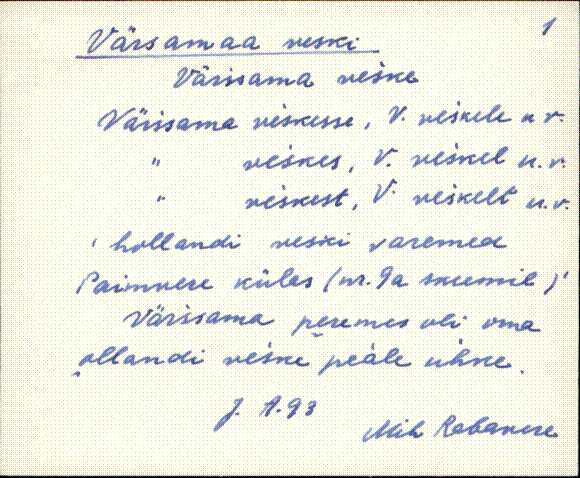 1
Värsamaa veski
Värisama veiske
Värisama veiskesse, V. veiskele n. v.
" veiskes, V. veiskel n. v.
" veiskest, V. veiskelt n. v.
'hollandi veski varemed
Paimvere külas (nr. 9a skeemil)'
Värisama peremes oli oma
ollandi veiske peäle uhke.
J. A. 93
Mih Rabavere